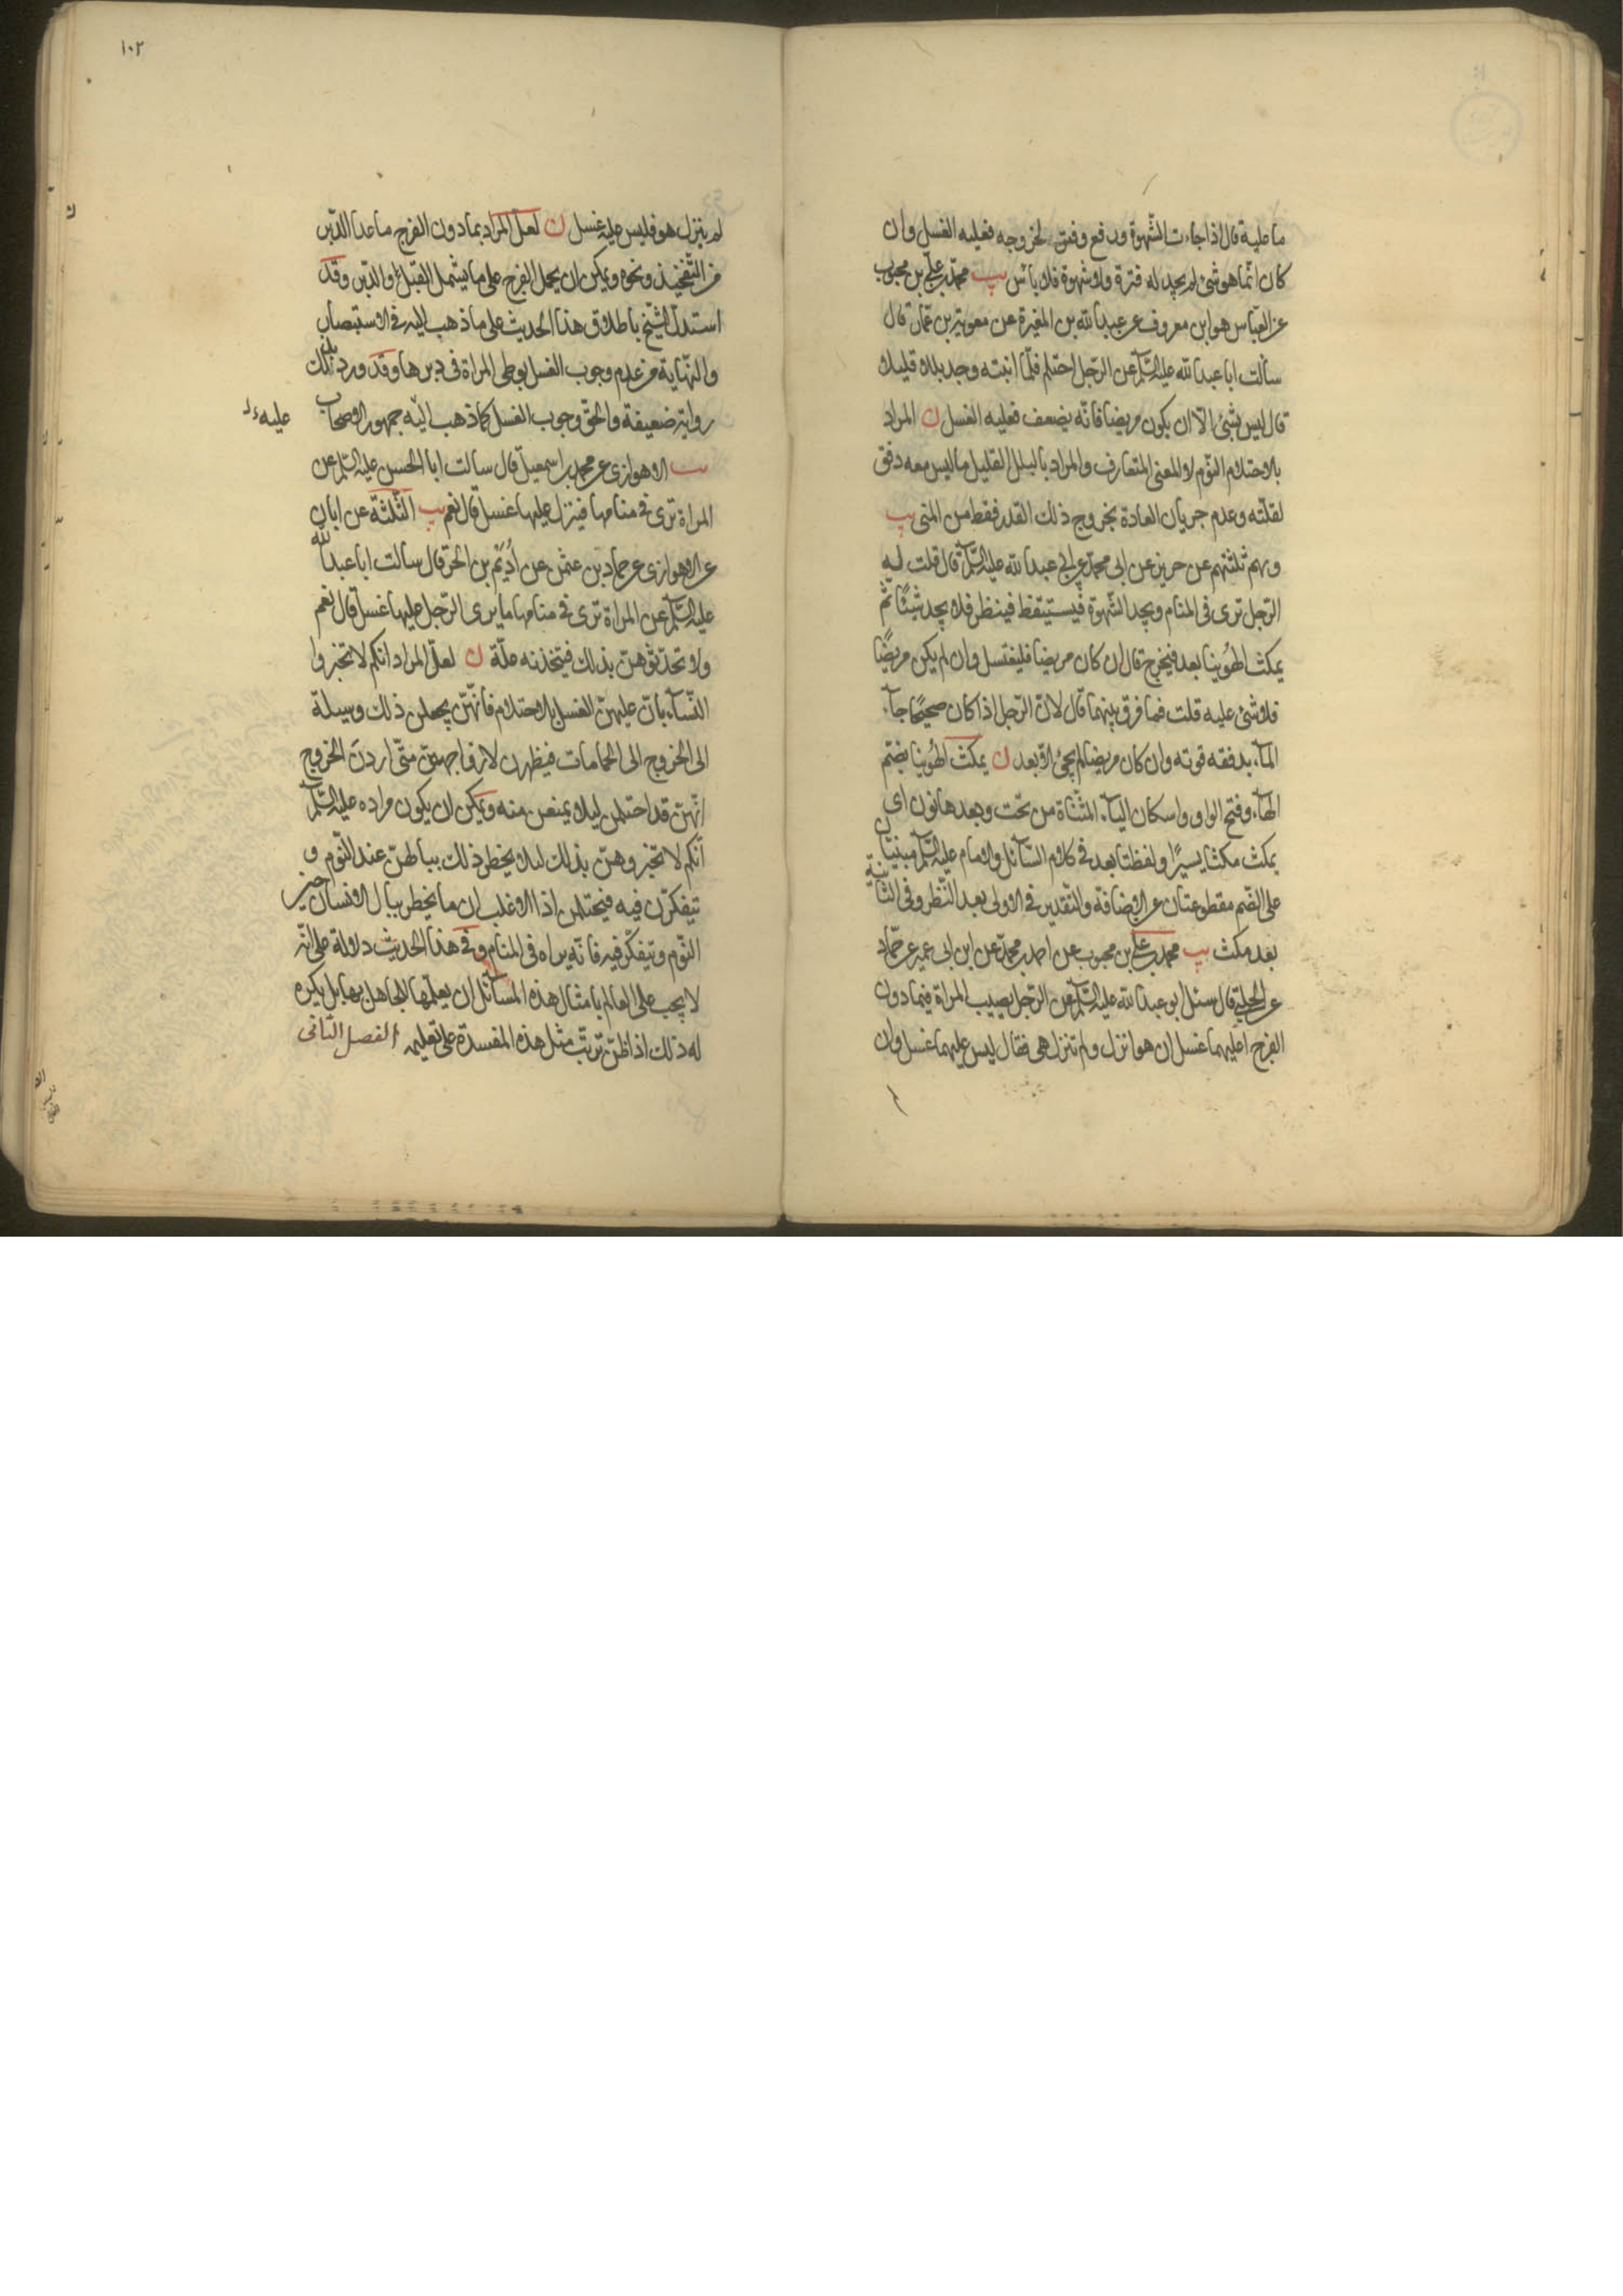 ما عليه قال اذا جاءت الشّهوة ودفع وفتق لخروجه فعليه الغسل وان
كان انّما هو شئ لم يجد له فترة ولا شهوة فلا باس يب محمّد بن علىّ بن محبوب
عن العبّاس هو ابن معروف عن عبدالله بن المغيرة عن معوية بن عمّار قال
سألت ابا عبدالله عليه السّلم عن الرّجل احتلم فلمّا انتبه وجد بللا قليلا
قال ليس بشئ الّا ان يكون مريضا فانّه يضعف فعليه الغسل ن المراد
بالاحتلام النّوم لا المعنى المتعارف والمراد بالبلل القليل ما ليس معه دفق
لقلّته وعدم جريان العادة بخروج ذلك القدر فقط من المنى يب
وبهم ثلثتهم عن حريز عن ابى محمد عن ابى عبدالله عليه السّلم قال قلت له
الرّجل ترى فى المنام ويجد الشّهوة فيستيقظ فينظر فلا يجد شيئًا ثمّ
يمكث الهُوينا بعد فيخرج قال ان كان مريضا فليغتسل وان لم يكن مريضًا
فلا شئ عليه قلت فما فرق بينهما قال لانّ الرّجل اذا كان صحيحًا جآء
المآء بدفقه قوته وان كان مريضا لم يجئ الا بعد ن يمكث الهُوينا بضمّ
الهآء وفتح الواو واسكان اليآء المثنّاة من تحت وبعدها نون اى
يمكث مكثا يسيرًا ولفظتا بعد فى كلام السّآئل والامام عليه السّلم مبنيتان
على الضّم مقطوعتان عن الاضافة والتّقدير فى الاولى بعد النّظر وفى الثّانية
بعد مكث يب محمد بن على بن محبوب عن احمد بن محمّد عن ابن ابى عمير عن حمّاد
عن الحلبى قال سئل ابو عبدالله عليه السّلم عن الرّجل يصيب المراة فيما دون
الفرج اعليهما غسل ان هو انزل ولم تنزل هى فقال ليس عليهما غسل وان
١٠٢
لم ينزل هو فليس عليه غسل ن لعلّ المراد بما دون الفرج ما عدا الدّبر
من التّفخيذ ونحوه ويمكن ان يحمل الفرج على ما يشمل القبل والدّبر وقد
استدلّ الشّيخ باطلاق هذا الحديث على ما ذهب اليه فى الاستبصار
والنّهاية من عدم وجوب الغسل بوطى المراة فى دبرها وقد ورد بذلك
رواية ضعيفة والحقّ وجوب الغسل كما ذهب اليه جمهور الاصحاب
عليه
يب الاهوازى عن محمد بن اسمعيل قال سالت ابا الحسن عليه السّلم عن
المراة ترى فى منامها فينزل عليها غسل قال نعم يب الثّلثة عن ابان
عن الاهوازى عن حماد بن عثمن عن أُدَيْم بن الحرّ قال سالت ابا عبدالله
عليه السّلم عن المراة ترى فى منامها ما يرى الرّجل عليها غسل قال نعم
ولا تحدّثوهنّ بذلك فيتّخذنه علّة ن لعلّ المراد انكم لا تخبروا
النّسآء بانّ عليهنّ الغسل بالاحتلام فانّهنّ يجعلن ذلك وسيلة
الى الخروج الى الحمامات فيظهرن لازواجهنّ متى اردن الخروج
انّهنّ قد احتلمن ليلا يمنعن منه ويمكن ان يكون مراده عليه السّلم
انّكم لا تخبروهنّ بذلك لئلا يخطر ذلك ببالهنّ عند النّوم و
تيفكّرن فيه فيحتلمن اذا الاغلب ان ما يخطر ببال الانسان حين
النّوم ويتفكّر فيه فانّه يراه فى المنام وفى هذا الحديث دلالة على انّه
لا يجب على العالم بامثال هذه المسآئل ان يعلّمها الجاهل بها بل يكره
له ذلك اذا ظنّ ترتّب مثل هذه المفسدة على تعليمه الفصل الثّانى